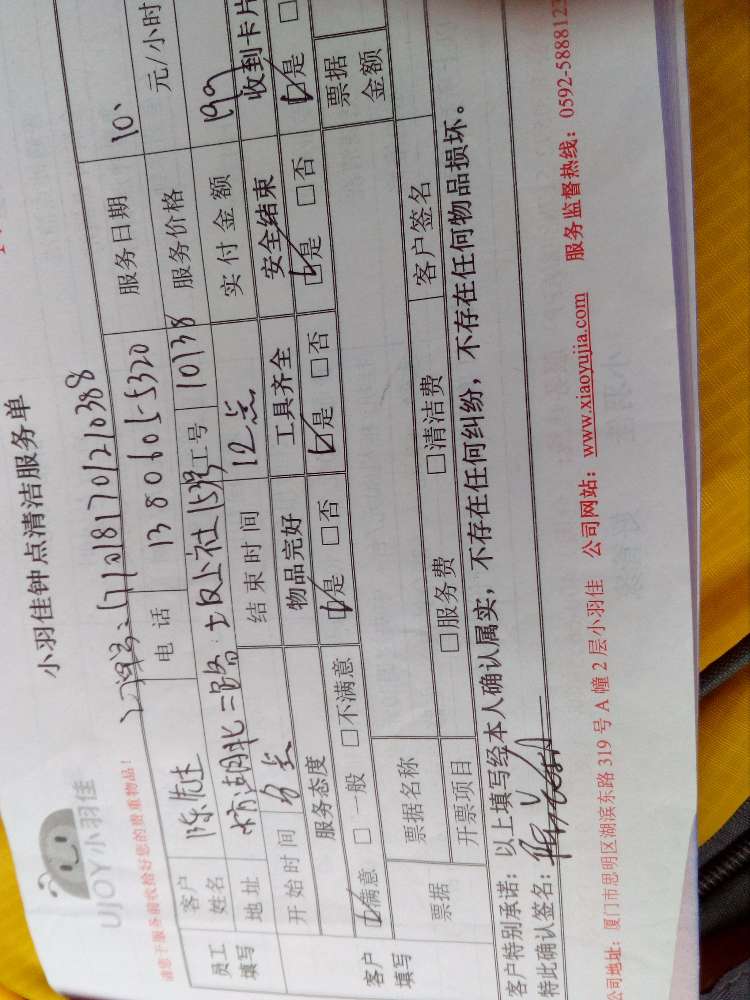 小羽佳钟点清洁服务单
UJOY小羽佳
请您于服务前收拾好您的贵重物品！
员工填写
客户姓名 电话 13806055320 服务日期 10、
地址 工号 10138 服务价格 元/小时
开始时间 结束时间 12点 实付金额 199
客户填写
服务态度 物品完好 工具齐全 安全结束 收到卡片
☑满意 □一般 □不满意 ☑是 □否 ☑是 □否 ☑是 □否 ☑是 □
票据 票据名称 票据金额
开票项目 □服务费 □清洁费 客户签名
客户特别承诺：以上填写经本人确认属实，不存在任何纠纷，不存在任何物品损坏。
特此确认签名：
公司地址：厦门市思明区湖滨东路 319 号 A 幢 2 层小羽佳 公司网站：www.xiaoyujia.com 服务监督热线：0592-5888122